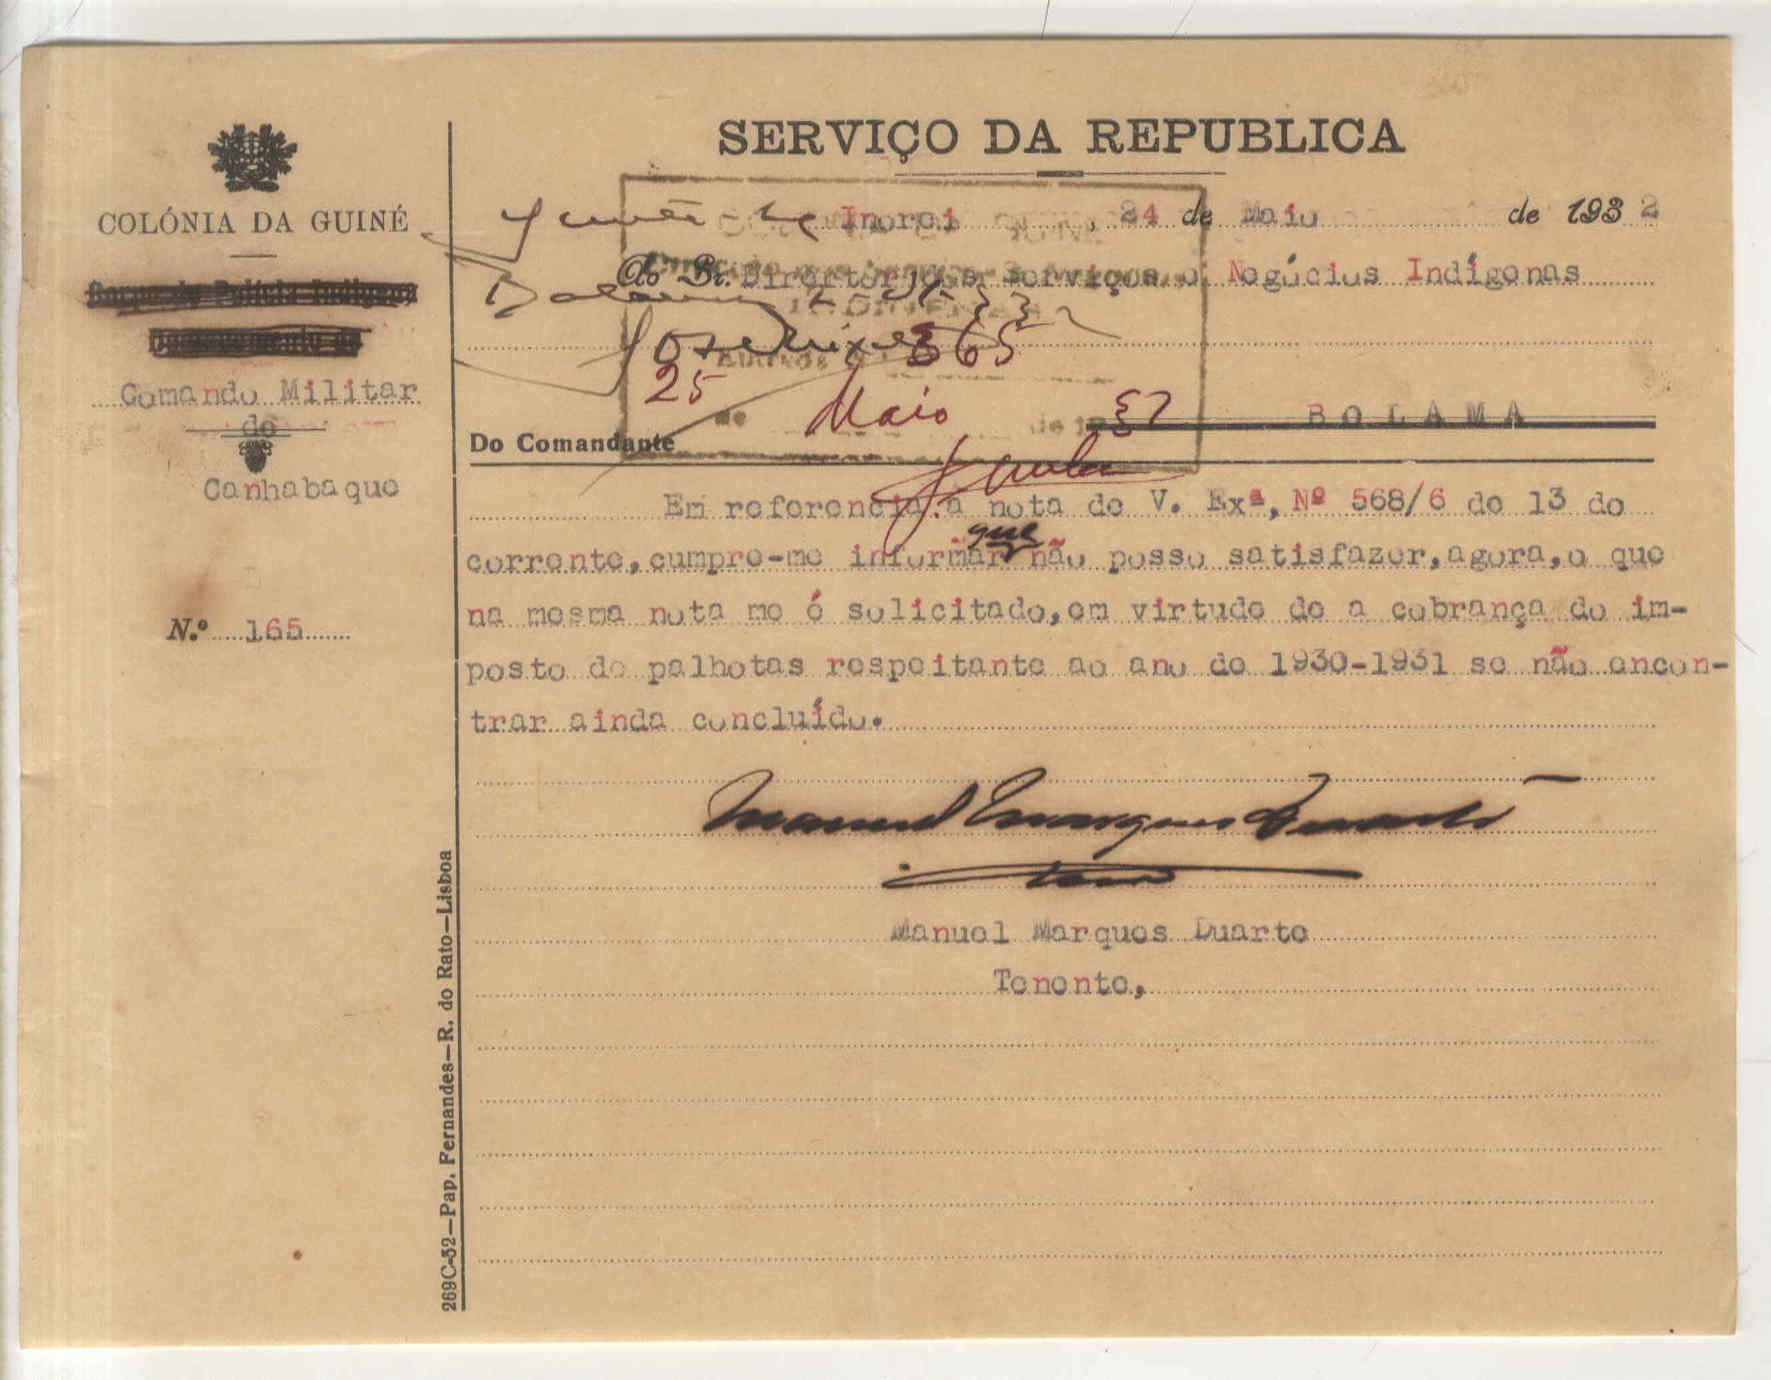 SERVIÇO DA REPUBLICA
COLÓNIA DA GUINÉ
Comando Militar
de
Canhabaque
N.º 165
Inorei, 24 de Maio de 1932
Ao Sr. Director dos Serviços e Negócios Indígenas
365
25
de Maio de 1932
BOLAMA
Do Comandante
Em referencia a nota de V. Exª, Nº 568/6 de 13 do
corrente, cumpre-me informar que não posso satisfazer, agora, o que
na mesma nota me é solicitado, em virtude de a cobrança do im-
posto de palhotas respeitante ao ano de 1930-1931 se não encon-
trar ainda concluído.
Manuel Marques Duarte
Manuel Marques Duarte
Tenente,
269C-32—Pap. Fernandes—R. do Rato—Lisboa